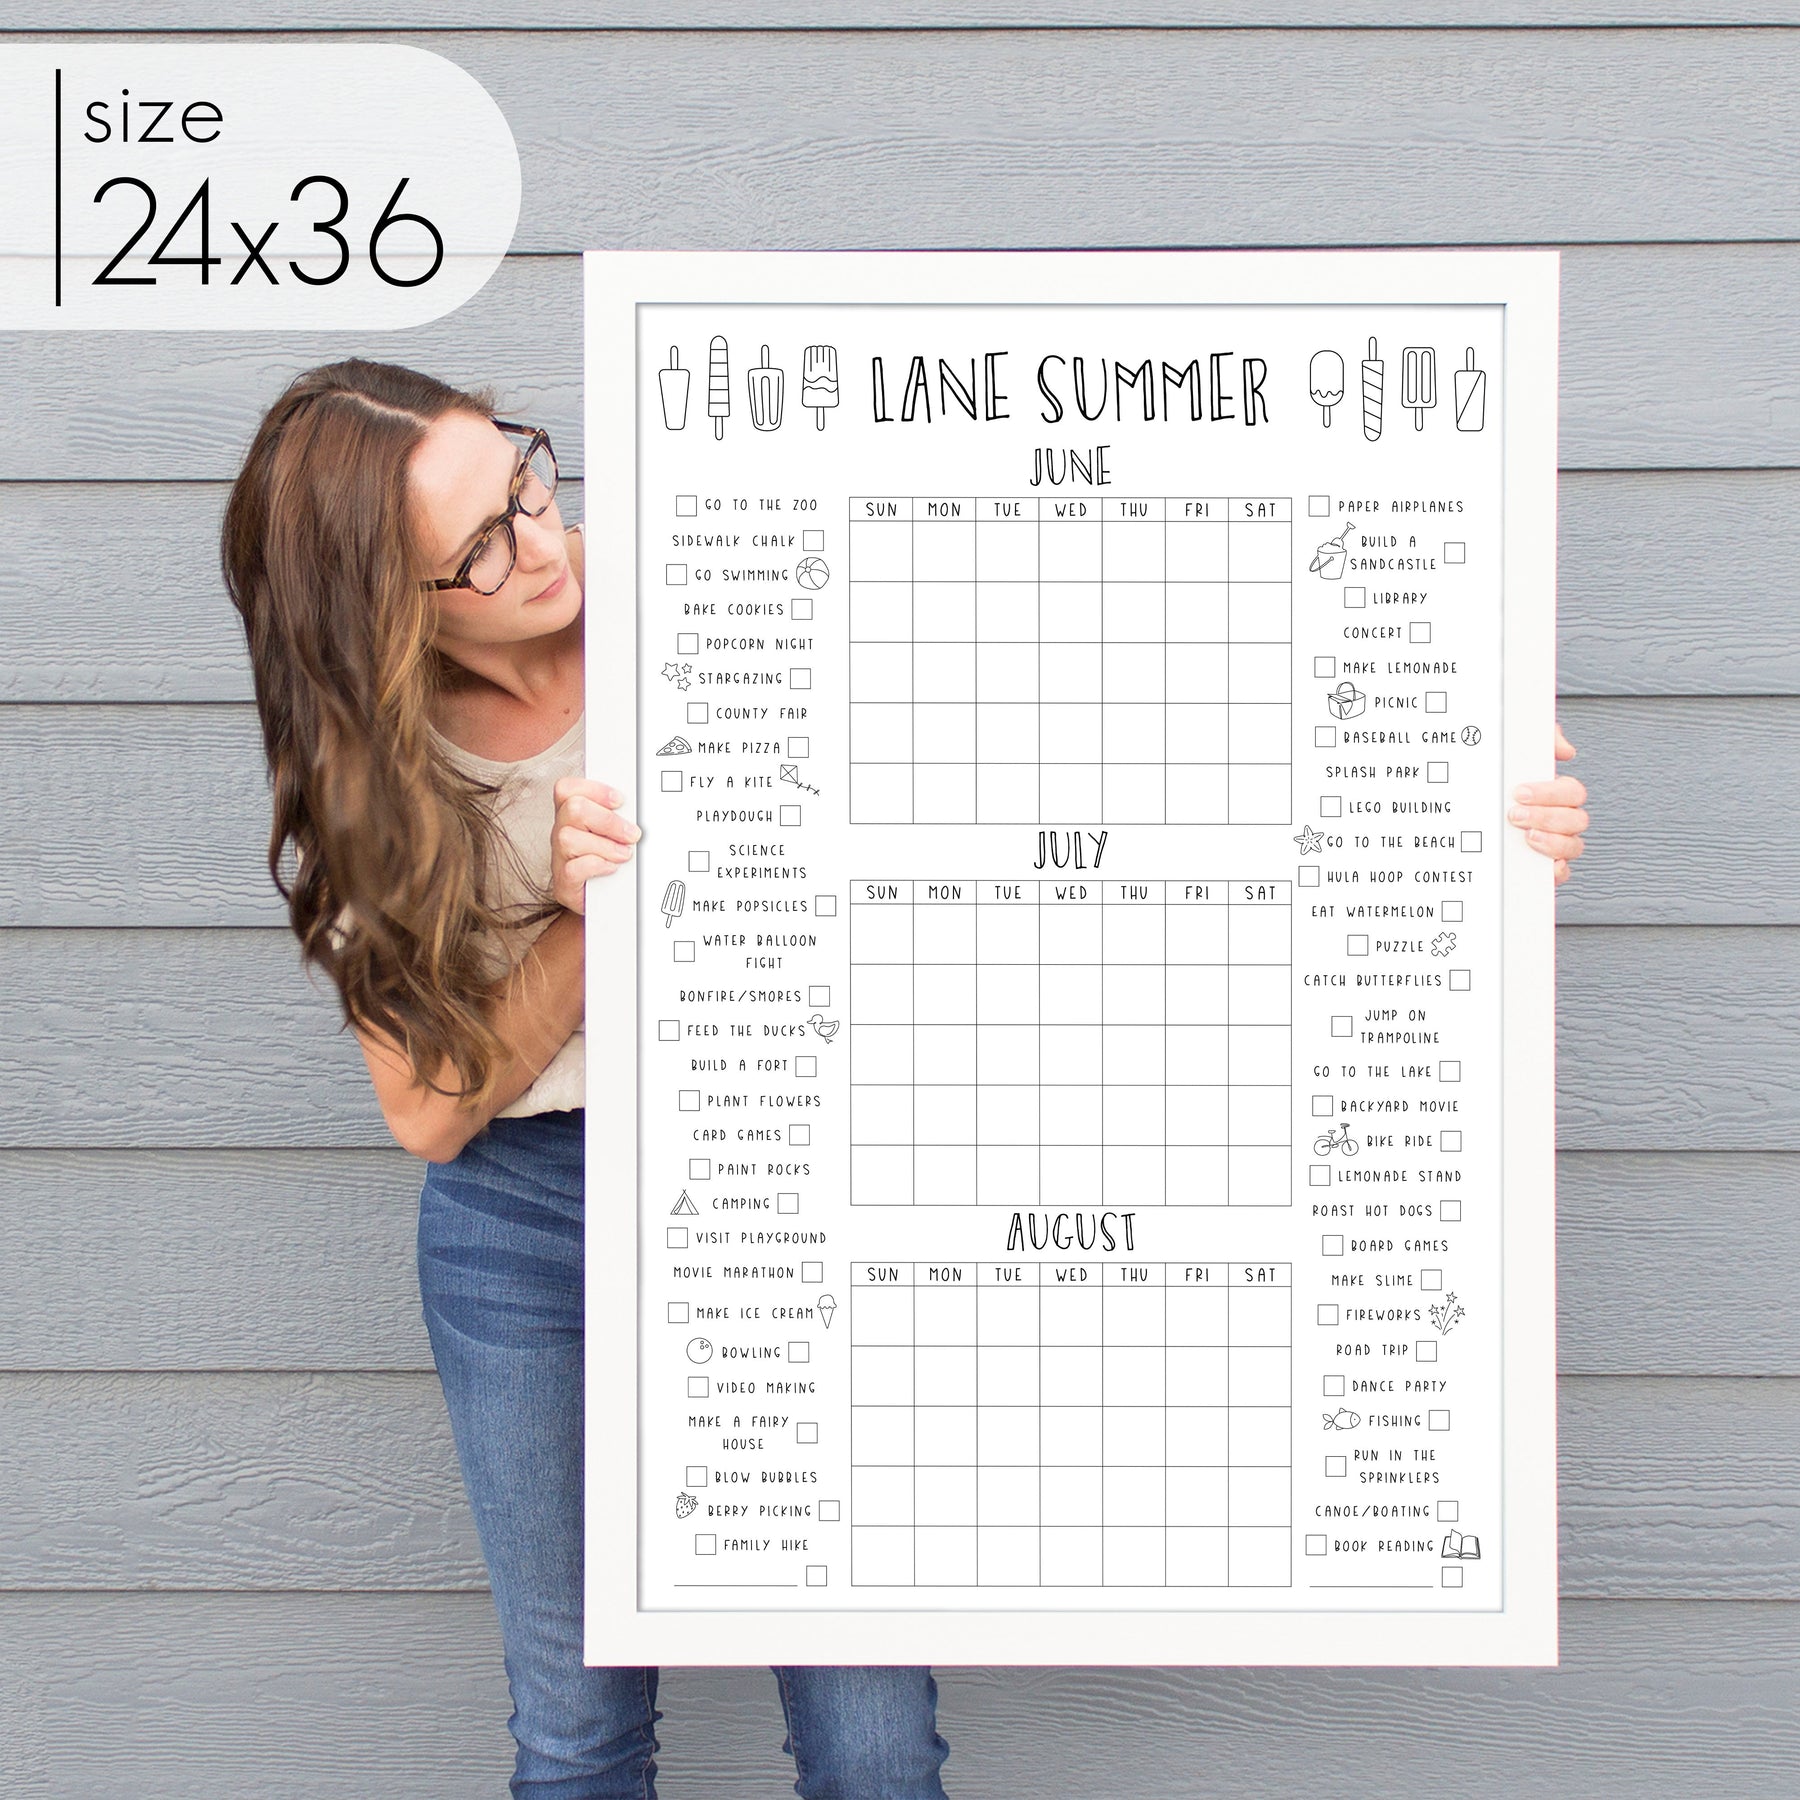 size
24x36
LANE SUMMER
JUNE
SUN MON TUE WED THU FRI SAT
JULY
SUN MON TUE WED THU FRI SAT
AUGUST
SUN MON TUE WED THU FRI SAT
GO TO THE ZOO
SIDEWALK CHALK
GO SWIMMING
BAKE COOKIES
POPCORN NIGHT
STARGAZING
COUNTY FAIR
MAKE PIZZA
FLY A KITE
PLAYDOUGH
SCIENCE
EXPERIMENTS
MAKE POPSICLES
WATER BALLOON
FIGHT
BONFIRE/SMORES
FEED THE DUCKS
BUILD A FORT
PLANT FLOWERS
CARD GAMES
PAINT ROCKS
CAMPING
VISIT PLAYGROUND
MOVIE MARATHON
MAKE ICE CREAM
BOWLING
VIDEO MAKING
MAKE A FAIRY
HOUSE
BLOW BUBBLES
BERRY PICKING
FAMILY HIKE
PAPER AIRPLANES
BUILD A
SANDCASTLE
LIBRARY
CONCERT
MAKE LEMONADE
PICNIC
BASEBALL GAME
SPLASH PARK
LEGO BUILDING
GO TO THE BEACH
HULA HOOP CONTEST
EAT WATERMELON
PUZZLE
CATCH BUTTERFLIES
JUMP ON
TRAMPOLINE
GO TO THE LAKE
BACKYARD MOVIE
BIKE RIDE
LEMONADE STAND
ROAST HOT DOGS
BOARD GAMES
MAKE SLIME
FIREWORKS
ROAD TRIP
DANCE PARTY
FISHING
RUN IN THE
SPRINKLERS
CANOE/BOATING
BOOK READING